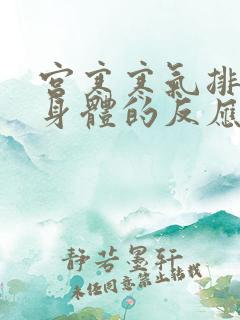 宫寒寒氣排
身體的反應
靜若墨軒
未经同意禁止转载